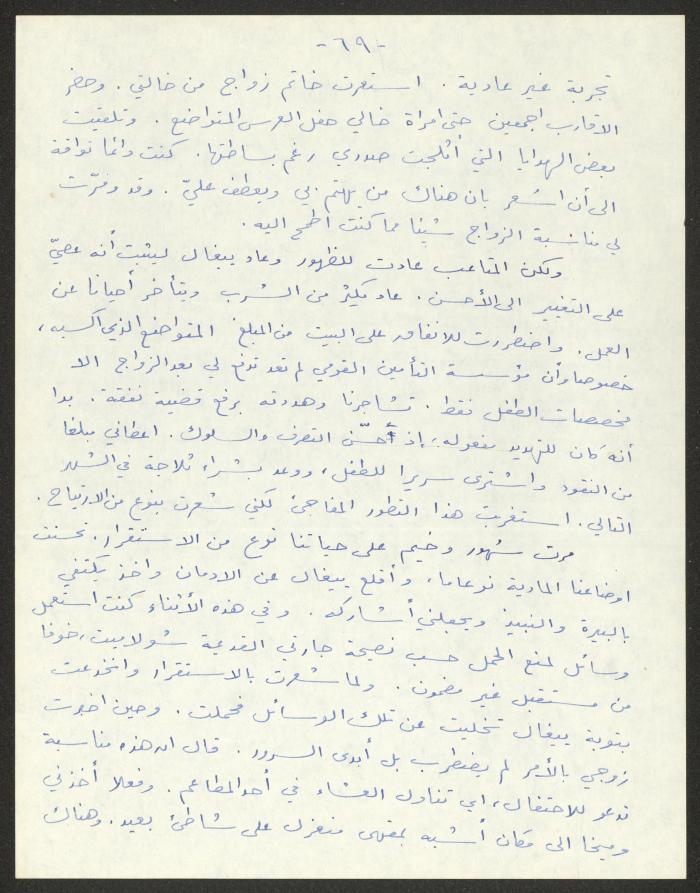 -٦٩-
تجربة غير عادية. استعرت خاتم زواج من خالتي. وحضر
الاقارب اجمعين حتى امرأة خالي حفل العرس المتواضع. وتلقيت
بعض الهدايا التي أثلجت صدري رغم بساطتها. كنت دائما تواقة
الى أن اشعر بان هناك من يهتم بي ويعطف عليّ. وقد وفرّت
لي مناسبة الزواج شيئا مما كنت اطمح اليه.
ولكن المتاعب عادت للظهور وعاد ييغال ليثبت أنه عصيّ
على التغيير الى الأحسن. عاد يكثر من الشرب ويتأخر أحيانا عن
العمل. واضطررت للانفاق على البيت من المبلغ المتواضع الذي اكسبه،
خصوصا وأن مؤسسة التأمين القومي لم تعد تدفع لي بعد الزواج الا
مخصصات الطفل فقط. تشاجرنا وهددته برفع قضية نفقة. بدا
أنه كان للتهديد مفعوله، إذ أحسّن التصرف والسلوك. اعطاني مبلغا
من النقود واشترى سريرا للطفل، ووعد بشراء ثلاجة في الشهر
التالي. استغربت هذا التطور المفاجئ لكني شعرت بنوع من الارتياح.
مرت شهور وخيم على حياتنا نوع من الاستقرار. تحسنت
اوضاعنا المادية نوعاما، وأقلع ييغال عن الادمان واخذ يكتفي
بالبيرة والنبيذ ويجعلني أشاركه. وفي هذه الأثناء كنت استعمل
وسائل لمنع الحمل حسب نصيحة جارتي القديمة شولاميت، خوفا
من مستقبل غير مضمون. ولما شعرت بالاستقرار وانخدعت
بتوبة ييغال تخليت عن تلك الوسائل فحملت. وحين اخبرت
زوجي بالأمر لم يضطرب بل أبدى السرور. قال ان هذه مناسبة
تدعو للاحتفال، اي تناول العشاء في أحد المطاعم. وفعلا أخذني
وميخا الى مكان أشبه بمقهى منعزل على شاطئ بعيد. وهناك